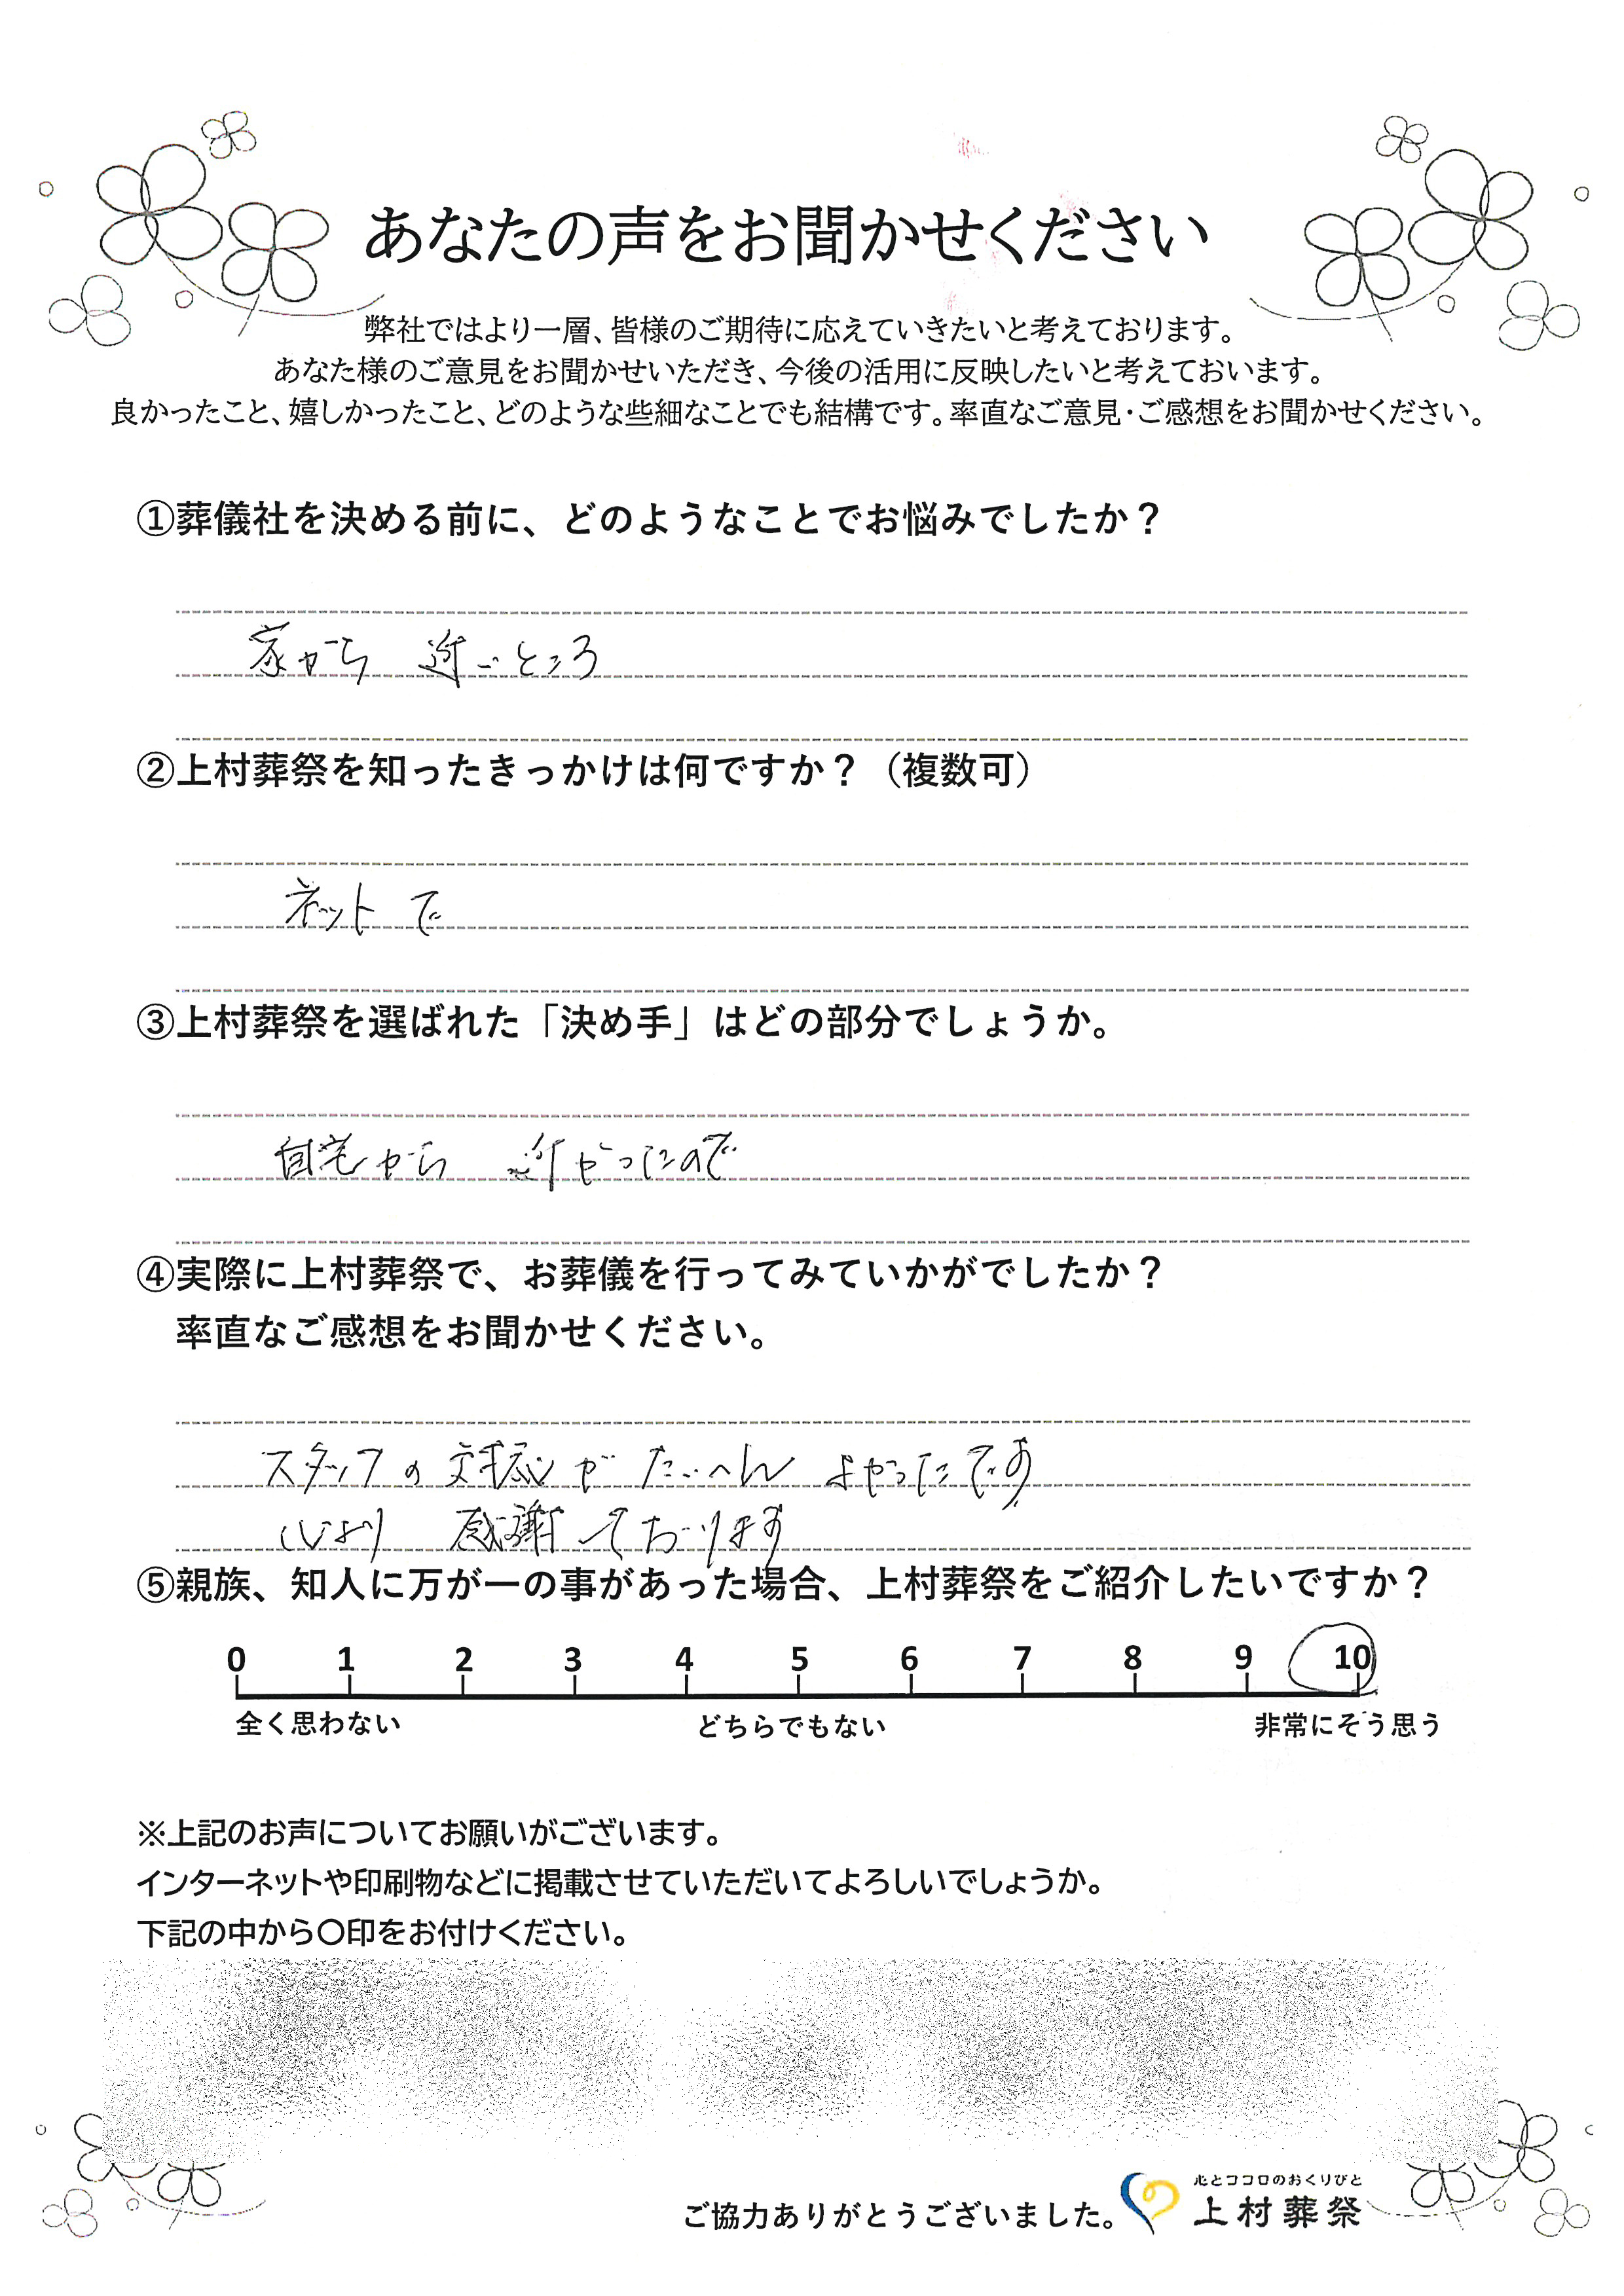 あなたの声をお聞かせください
弊社ではより一層、皆様のご期待に応えていきたいと考えております。
あなた様のご意見をお聞かせいただき、今後の活用に反映したいと考えておいます。
良かったこと、嬉しかったこと、どのような些細なことでも結構です。率直なご意見・ご感想をお聞かせください。
①葬儀社を決める前に、どのようなことでお悩みでしたか？
家から 近いところ
②上村葬祭を知ったきっかけは何ですか？（複数可）
ネットで
③上村葬祭を選ばれた「決め手」はどの部分でしょうか。
自宅から 近かったので
④実際に上村葬祭で、お葬儀を行ってみていかがでしたか？
率直なご感想をお聞かせください。
スタッフの対応が たいへん よかったです
心より 感謝しております
⑤親族、知人に万が一の事があった場合、上村葬祭をご紹介したいですか？
0 1 2 3 4 5 6 7 8 9 10
全く思わない どちらでもない 非常にそう思う
※上記のお声についてお願いがございます。
インターネットや印刷物などに掲載させていただいてよろしいでしょうか。
下記の中から〇印をお付けください。
心とココロのおくりびと
ご協力ありがとうございました。 上村葬祭